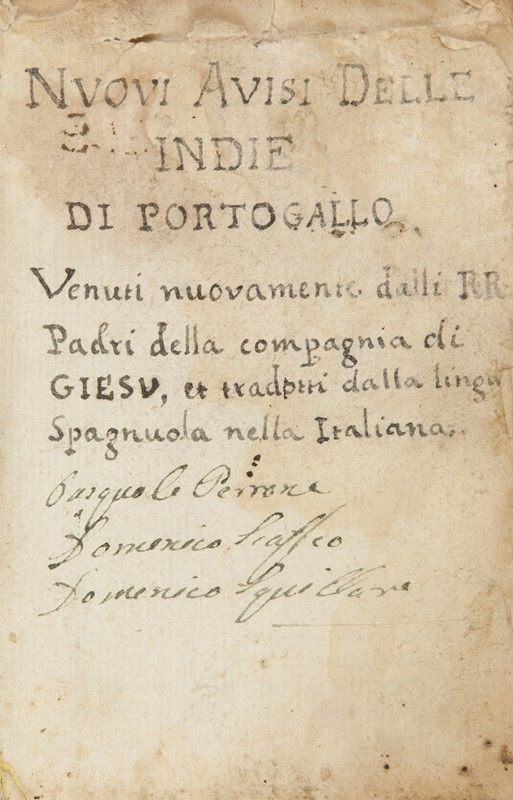 NVOVI AVISI DELLE
INDIE
DI PORTOGALLO
Venuti nuovamente dalli RR
Padri della compagnia di
GIESV, et tradotti dalla lingu
Spagnuola nella Italiana.
Pasquale Perrone
Domenico Scaffeo
Domenico Squillare